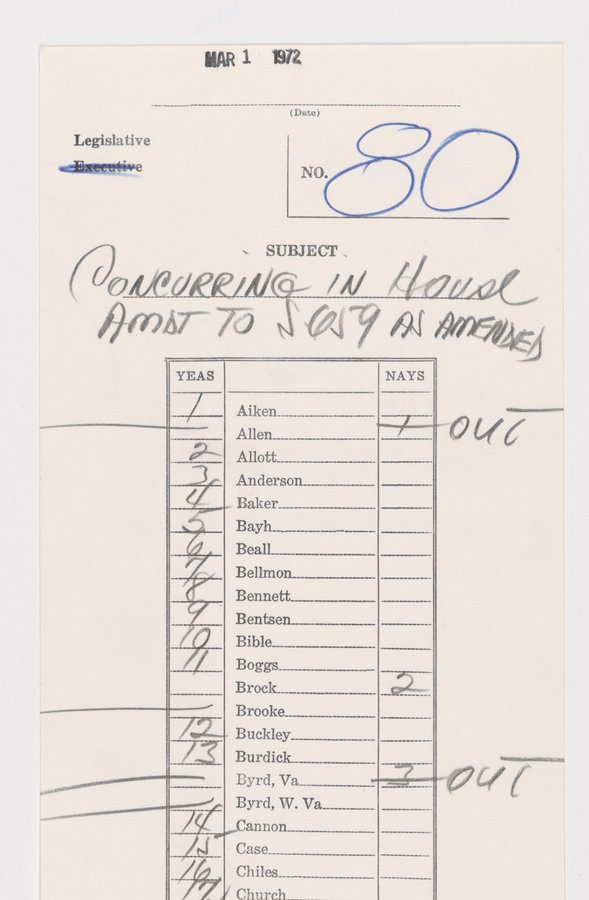 MAR 1 1972
(Date)
Legislative
Executive
NO. 80
SUBJECT
CONCURRING IN House
AMDT TO S 659 AS AMENDED
YEAS NAYS
1 Aiken
Allen 1 OUT
2 Allott
3 Anderson
4 Baker
5 Bayh
6 Beall
7 Bellmon
8 Bennett
9 Bentsen
10 Bible
11 Boggs
Brock 2
Brooke
12 Buckley
13 Burdick
Byrd, Va 3 OUT
Byrd, W. Va
14 Cannon
15 Case
16 Chiles
17 Church